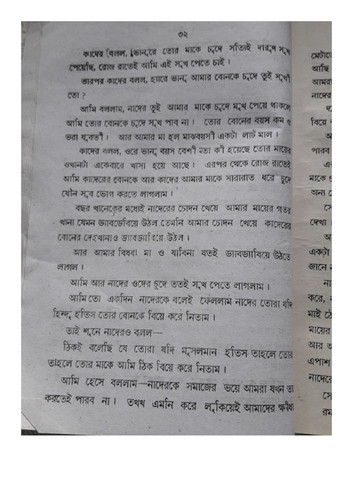 ৩২
কাদের বলল, ভানু রে তোর মাকে চুদে সত্যিই দারুণ সুখ
পেয়েছি, রোজ রাতেই আমি এই সুখ পেতে চাই।
তারপর কাদের বলল, হ্যারে ভানু আমার বোনকে চুদে তুই সুখী
তো?
আমি বললাম, নাদের তুই আমার মাকে চুদে সুখ পেয়ে থাকলে
আমি তোর বোনকে চুদে সুখ পাব না। তোর বোনের বয়স কম ও
ভরা যুবতী। আর আমার মা হল মাঝবয়সী একটা লাট মাল।
কাদের বলল, ওরে ভানু বয়স বেশী তো কী হয়েছে তোর মায়ের
ওখানটা একেবারে খাসা হয়ে আছে। এরপর থেকে রোজ রাতেই
আমি কাদেরের বোনকে আর কাদের আমার মাকে সারারাত ধরে চুদে
যৌন সুখ ভোগ করতে লাগলাম।
বছর খানেকের মধ্যেই নাদেরের চোদন খেয়ে আমার মায়ের গতর
খানা যেমন জ্যাবজেবিয়ে উঠল তেমনি আমার চোদন খেয়ে কাদেরের
বোনের দেহখানাও জ্যাবজাবিয়ে উঠল।
আর আমার বিধবা মা ও যাবিনা যতই জ্যাবজাবিয়ে উঠতে
লাগল।
আমি আর নাদের ওদের চুদে ততই সুখ পেতে লাগলাম।
আমি তো একদিন নাদেরকে বলেই ফেললাম নাদের তোরা যদি
হিন্দু হতিস তোর বোনকে বিয়ে করে নিতাম।
তাই শুনে নাদেরও বলল—
ঠিকই বলেছি যে তোরা যদি মুসলমান হতিস তাহলে তোর
তাহলে তোর মাকে আমি ঠিক বিয়ে করে নিতাম।
আমি হেসে বললাম—নাদেরকে সমাজের ভয়ে আমরা যখন তা
করতেই পারব না। তখন এমনি করে লুকিয়েই আমাদের